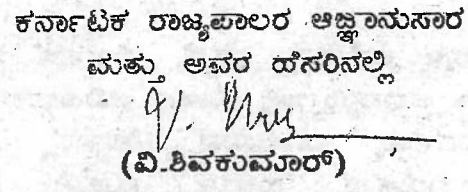 ಕರ್ನಾಟಕ ರಾಜ್ಯಪಾಲರ ಆಜ್ಞಾನುಸಾರ
ಮತ್ತು ಅವರ ಹೆಸರಿನಲ್ಲಿ
(ವಿ.ಶಿವಕುಮಾರ್)